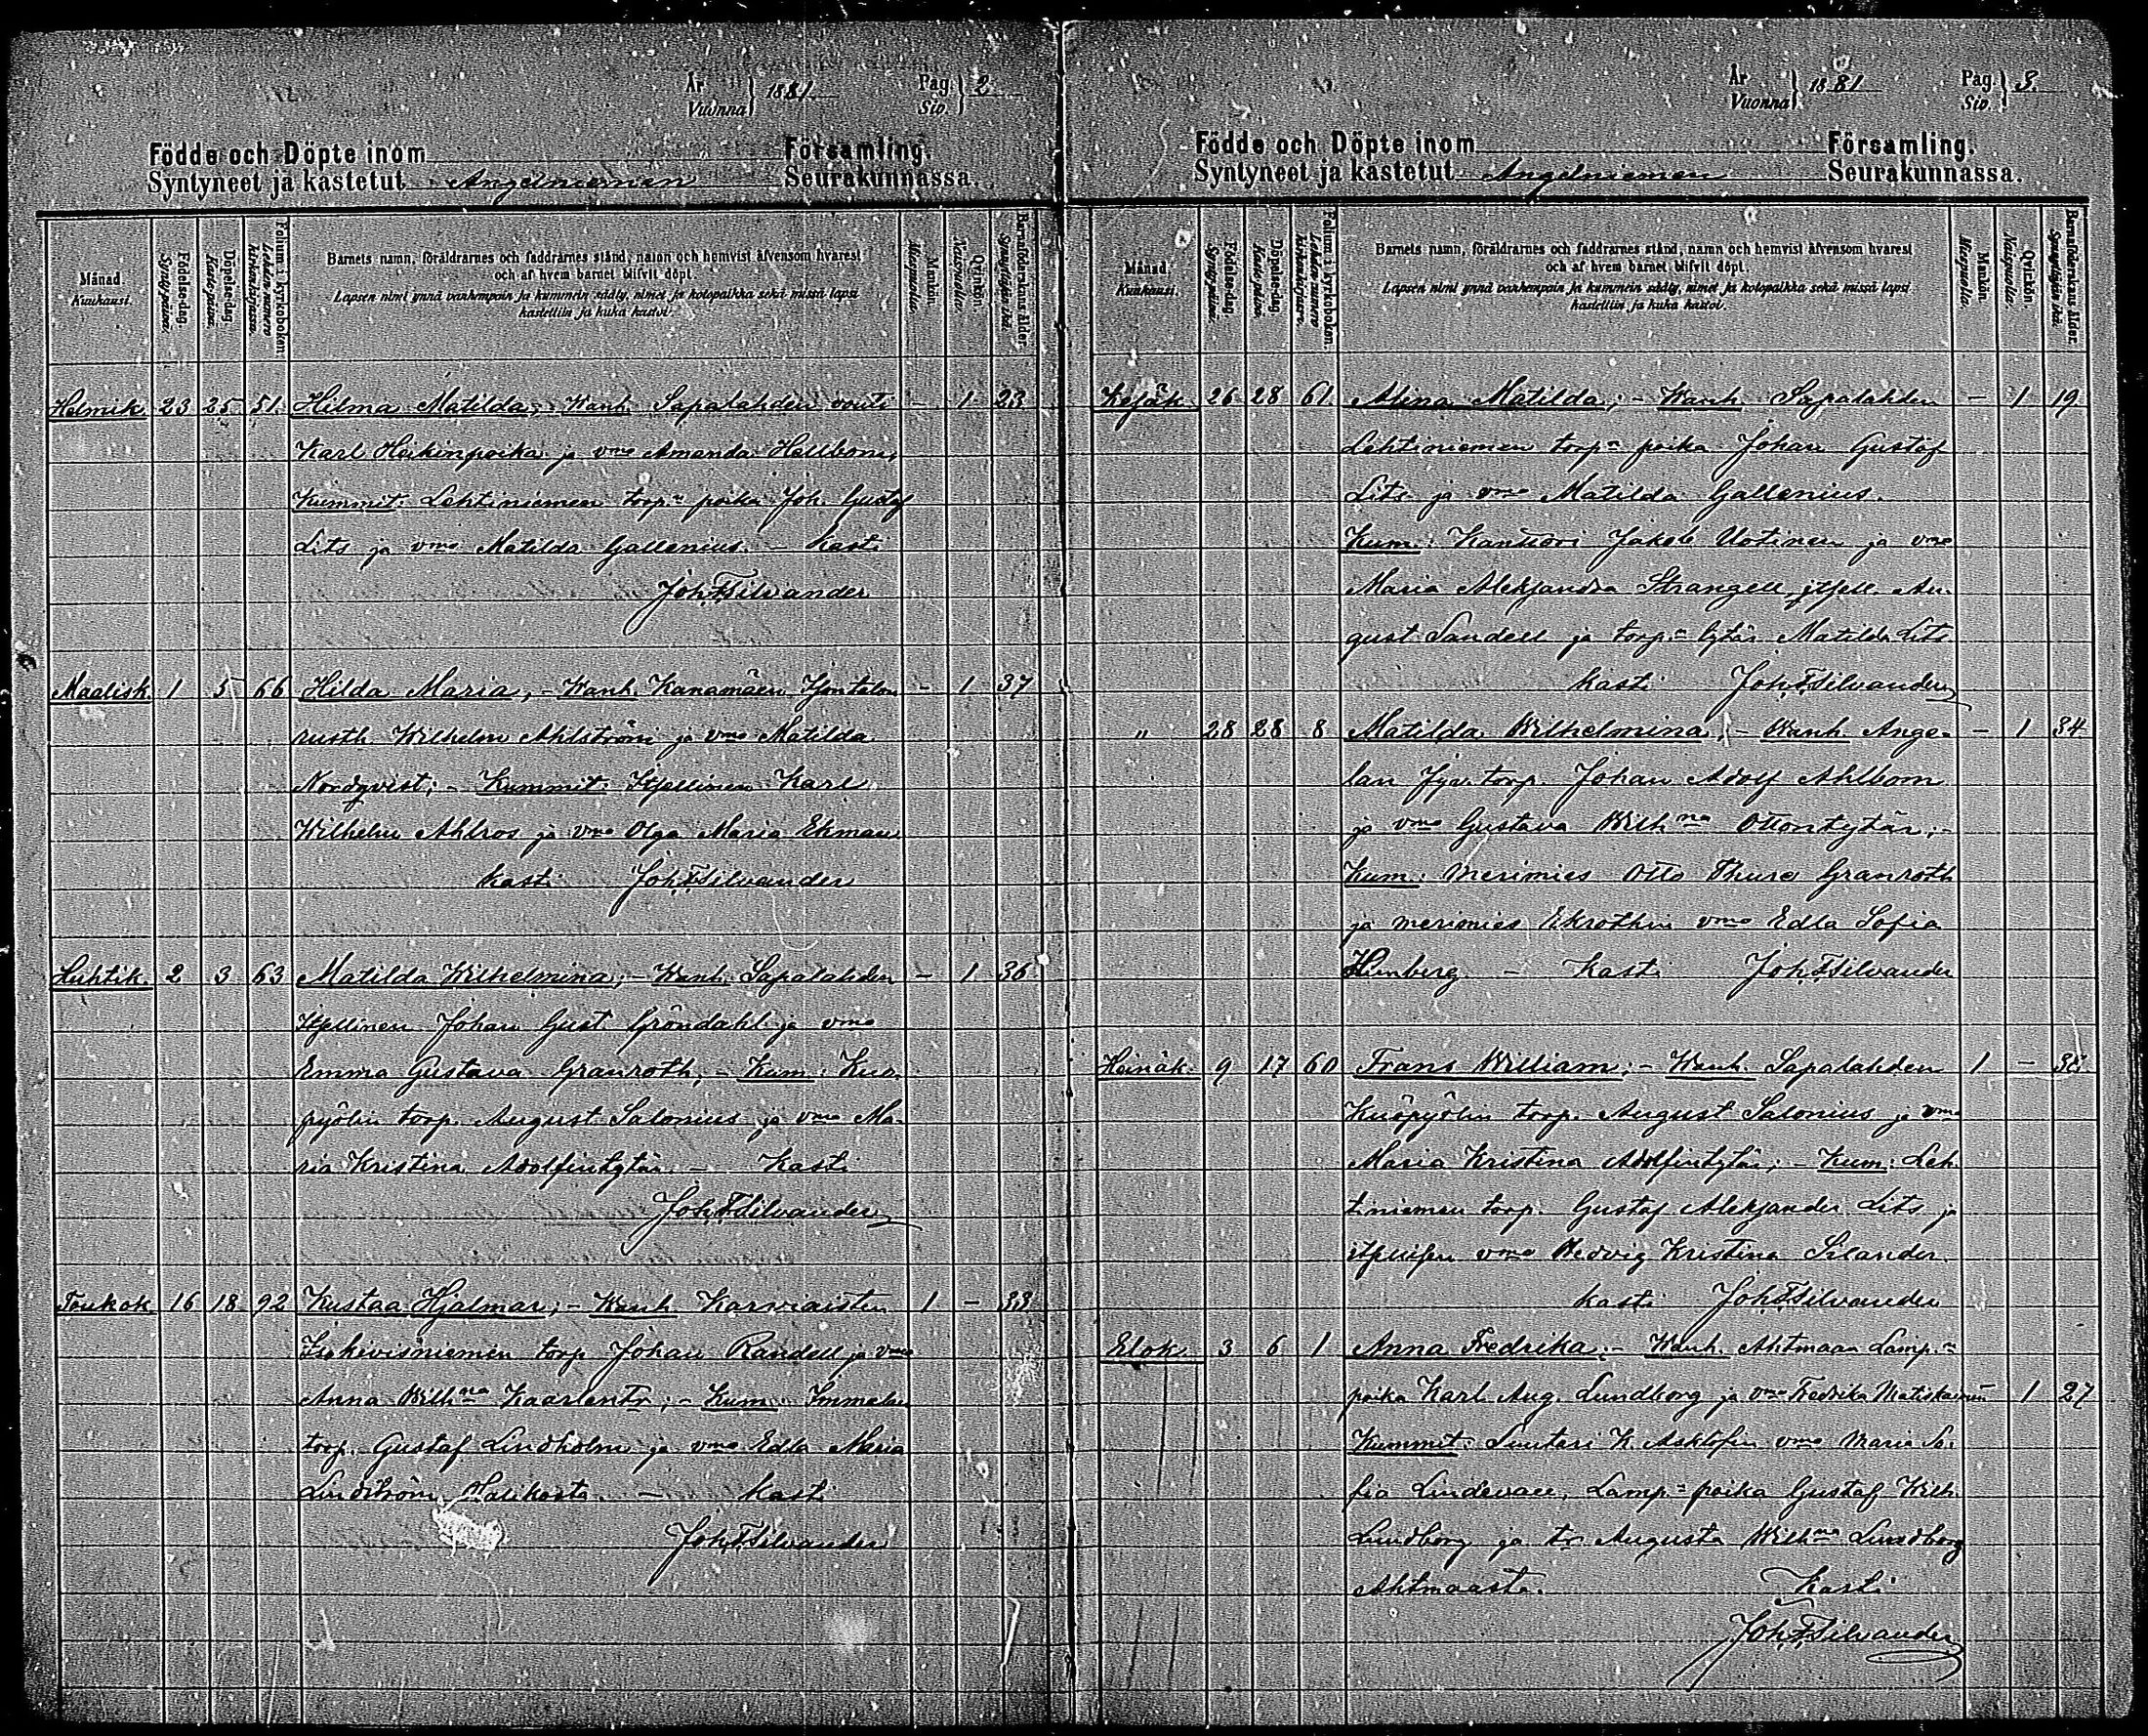 År
Vuonna } 1881
Pag.
Siv. } 2
Födde och Döpte inom Församling.
Syntyneet ja kastetut Angelniemen Seurakunnassa.
Månad.
Kuukausi.
Födelse-dag.
Syntypäivä.
Döpelse-dag.
Kaste-päivä.
Folium i kyrkoboken.
Lehden numero kirkonkirjassa.
Barnets namn, föräldrarnes och faddrarnes stånd, namn och hemvist äfvensom hvarest
och af hvem barnet blifvit döpt.
Lapsen nimi ynnä vanhempain ja kummein sääty, nimet ja kotopaikka sekä missä lapsi
kastettiin ja kuka kastoi.
Mankön.
Miespuolia.
Qvinkön.
Naispuolia.
Barnaföderskans ålder.
Synnyttäjän ikä.
Helmik. 23 25 51. Hilma Matilda; - Wanh. Sapalahden vouti - 1 23
Karl Heikinpoika ja vmo Amanda Hellbom,
Kummit: Lehtiniemen torp:n poika Joh. Gustaf
Lits ja vmo Matilda Gallenius. - Kasti
Joh. F. Silvander
Maalisk. 1 5 66 Hilda Maria; - Wanh. Kanamäen - 1 37
rusth. Wilhelm Ahlström ja vmo Matilda
Nordqvist; - Kummit: Itsellinen Karl
Wilhelm Ahlros ja vmo Olga Maria Ekman
kasti Joh. F. Silvander
Huhtik. 2 3 63 Matilda Wilhelmina; - Wanh. Sapalahden - 1 36
Itsellinen Johan Gust. Gröndahl ja vmo
Emma Gustava Granroth, - Kum: Kuo-
pyölin torp. August Salonius ja vmo Ma-
ria Kristina Adolfintytär - Kasti
Joh. F. Silvander
Toukok. 16 18 92 Kustaa Hjalmar; - Wanh. Karviaisten 1 - 33
torp. Johan Randell ja vmo
Anna Wilh:na Kaarlentr; - Kum:
torp. Gustaf Lindholm ja vmo Edla Maria
Lindström Halikosta. - Kasti
Joh. F. Silvander
År
Vuonna } 1881
Pag.
Siv. } 3.
Födde och Döpte inom Församling.
Syntyneet ja kastetut Angelniemen Seurakunnassa.
Månad.
Kuukausi.
Födelse-dag.
Syntypäivä.
Döpelse-dag.
Kaste-päivä.
Folium i kyrkoboken.
Lehden numero kirkonkirjassa.
Barnets namn, föräldrarnes och faddrarnes stånd, namn och hemvist äfvensom hvarest
och af hvem barnet blifvit döpt.
Lapsen nimi ynnä vanhempain ja kummein sääty, nimet ja kotopaikka sekä missä lapsi
kastettiin ja kuka kastoi.
Mankön.
Miespuolia.
Qvinkön.
Naispuolia.
Barnaföderskans ålder.
Synnyttäjän ikä.
Kesäk. 26 28 61 Alina Matilda; - Wanh. Sapalahden - 1 19
Lehtiniemen torp:n poika Johan Gustaf
Lits ja vmo Matilda Gallenius.
Kum: Kanttori Jakob Uotinen ja vmo
Maria Aleksandra Strangell, itsell. Au-
gust Sandell ja torp:n tytär Matilda Lits
kasti Joh. F. Silvander
" 28 28 8 Matilda Wilhelmina; - Wanh. Ange- - 1 34
lan torp. Johan Adolf Ahlbom
ja vmo Gustava Wilh:na Ottontytär; -
Kum: merimies Otto Thure Granroth
ja merimies Ekrothin vmo Edla Sofia
Himberg - Kasti Joh. F. Silvander
Heinäk. 9 17 60 Frans William; - Wanh. Sapalahden 1 -
Kuopyölin torp. August Salonius ja vmo
Maria Kristina Adolfintytär; - Kum: Leh-
tiniemen torp. Gustaf Aleksander Lits ja
vmo Hedvig Kristina Silander
kasti Joh. F. Silvander
Elok. 3 6 1 Anna Fredrika; - Wanh. Ahtmaan Lamp:n
poika Karl Aug. Lundborg ja vmo Fredrika - 1 27
Kummit: Suutari K. vmo Maria So-
fia Lindevall, Lamp:n poika Gustaf Wilh.
Lundborg ja tr Augusta Wilh:na Lundborg
Ahtmaasta. Kasti
Joh. F. Silvander